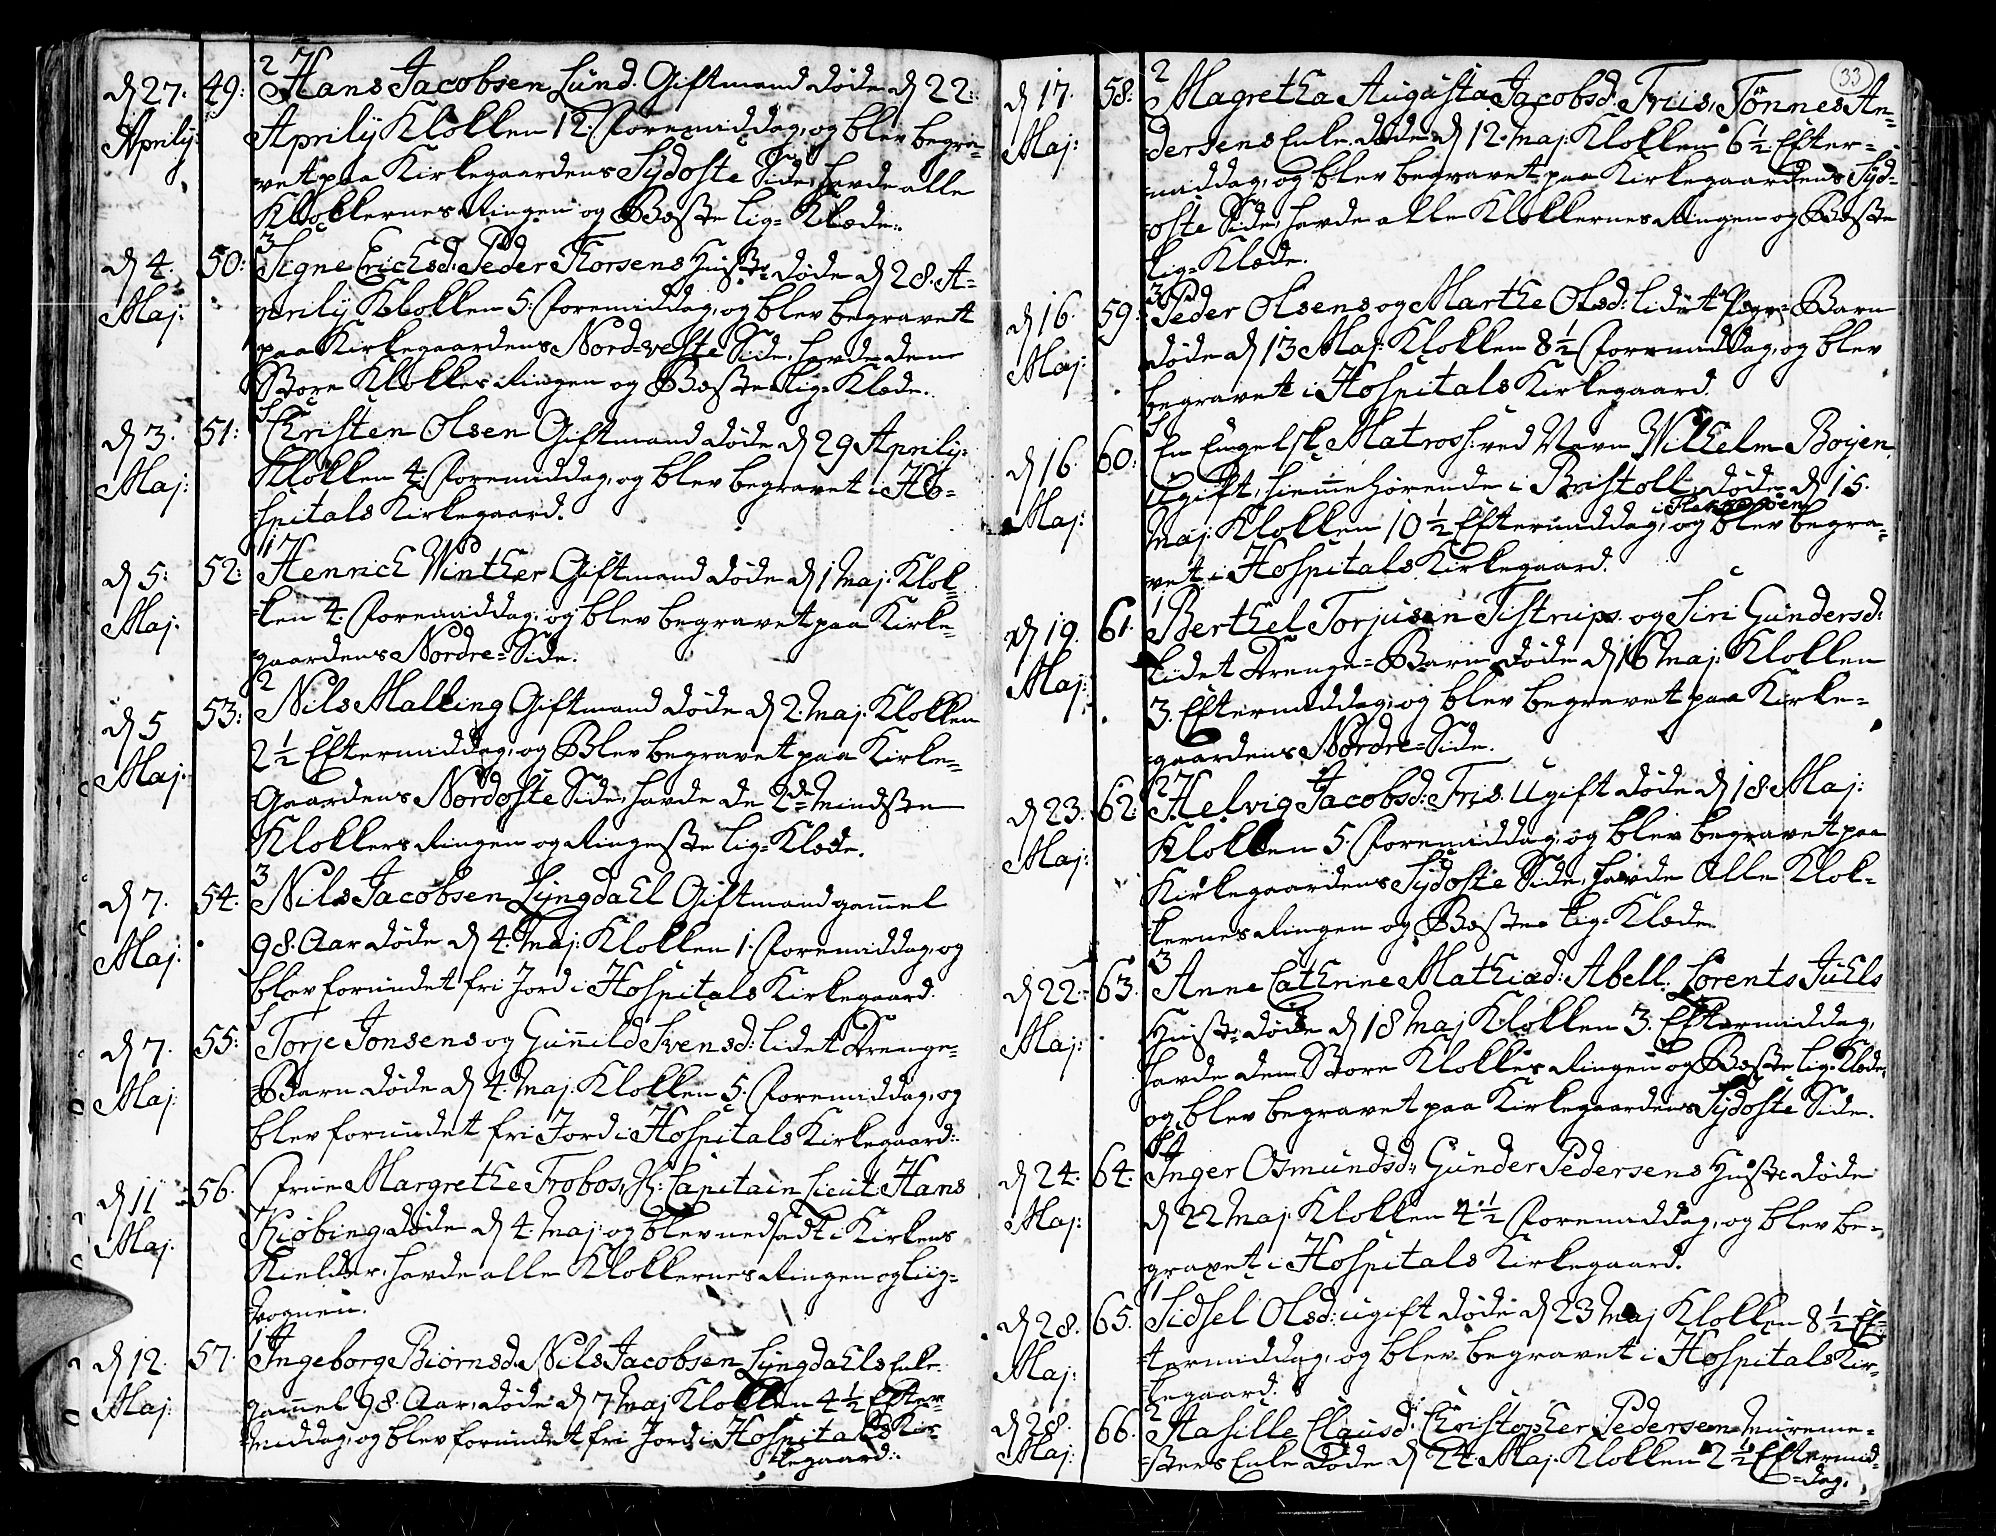 d 27. 49: 2 Hans Jacobsen Lund. Giftmand døde d 22:
Aprily: Aprily Klokken 12 Foremiddag, og blev begra-
vet paa Kirkegaardens Sydoste Side, havde alle
Klokkernes Ringen og Beste Lig-Klæde:
d 4. 50: 3 Signe Erichsd: Peder Thorsens Hustr: døde d 28. A-
Maj: prily Klokken 5. Foremiddag, og blev begravet
paa Kirkegaardens Nord-veste Side, havde den
Store Klokkes Ringen og Beste Lig-Klæde.
d 3. 51: Christen Olsen Giftmand døde d 29 Aprily:
Maj: Klokken 4. Foremiddag, og blev begravet i Ho-
spitals Kirkegaard.
d 5: 52: 1 Henrich Winther Giftmand døde d 1 Maj: Klok-
Maj. ken 4. Foremiddag, og blev begravet paa Kirke-
gaardens Nordre-Side.
d 5 53: 2 Nils Malling Giftmand døde d 2. Maj: Klokken
Maj: 2½ Eftermiddag, og Blev begravet paa Kirke-
Gaardens Nordoste Side, havde de 2de Mindste
Klokkers Ringen og Ringeste Lig-Klæde.
d 7. 54. 3 Nils Jacobsen Lyngdahl Giftmand gammel
Maj: 98. Aar døde d 4. Maj: Klokken 1. Foremiddag, og
blev forundet fri Jord i Hospitals Kirkegaard.
d 7. 55: Torje Jonsens og Gunild Svensd: lidet Drenge-
Maj: Barn døde d 4. Maj. Klokken 5. Foremiddag, og
blev forundet fri Jord i Hospitals Kirkegaard:
d 11 56. Frue Margrethe Trobos, Hr: Capitain Lieut: Hans
Maj. Kiøbing, døde d 4. Maj: og blev nedsadt i Kirkens
Kielder, havde alle Klokkernes Ringen og Liig-
Vognen.
d 12. 57. 1 Ingeborg Biørnsd. Nils Jacobsen Lyngdahls Enke
Maj: gammel 98. Aar, døde d 7 Maj Klokken 4½ Efter-
middag, og blev forundet fri Jord i Hospitals Kir-
kegaard:
33
d 17. 58: 2 Magretha Augusta Jacobsd: Friis, Tønnes An-
Maj: dersens Enke. døde d 12. Maj: Klokken 6½ Efter-
middag, og blev begravet paa Kirkegaardens Syd-
oste Side, havde alle Klokkernes Ringen og Beste
Lig-Klæde.
d 16. 59: 3 Peder Olsens og Marthe Olsd: lidet Pige-Barn
Maj: døde d 13 Maj: Klokken 8½ Foremiddag, og blev
begravet i Hospitals Kirkegaard.
d 16. 60: En Engelsk Matros h: ved Navn Wilhelm Boyen,
Maj: Ugift, hiemmehørende i Bristoll, døde d 15.
Maj: Klokken 10½ Eftermiddag, og blev begra-
vet i Hospitals Kirkegaard.
d 19. 61. 1 Berthel Torjusen Tistrups. og Siri Gundersd:
Maj: lidet Drenge-Barn, døde d 16 Maj: Klokken
3. Eftermiddag, og blev begravet paa Kirke-
gaardens Nordre-Side.
d 23. 62: 2 Helvig Jacobsd: Fris. Ugift døde d 18. Maj:
Maj: Klokken 5. Foremiddag, og blev begravet paa
Kirkegaardens Sydoste Side, havde Alle Klok-
kernes Ringen og Beste Lig-Klæde.
d 22: 63. 3 Anne Cathrine Mathiæd: Abell. Lorents Juels
Maj: Hustr: døde d 18 Maj Klokken 3. Eftermiddag,
havde den Store Klokkes Ringen og Beste Lig-Klæde,
og blev begravet paa Kirkegaardens Sydoste Side.
d 24. 64. Inger Osmundsd: Gunder Pedersens Hustr: døde
Maj: d 22 Maj. Klokken 4½ Foremiddag, og blev be-
gravet i Hospitals Kirkegaard.
d 28. 65. 1 Sidsel Olsd: ugift døde d 23 Maj Klokken 8½ Ef-
Maj: termiddag, og blev begravet i Hospitals Kir-
kegaard.
d 28. 66. 2 Clausd: Christopher Pedersen Mureme-
Maj: sters Enke døde d 24 Maj. Klokken 2½ Eftermid-
dag,